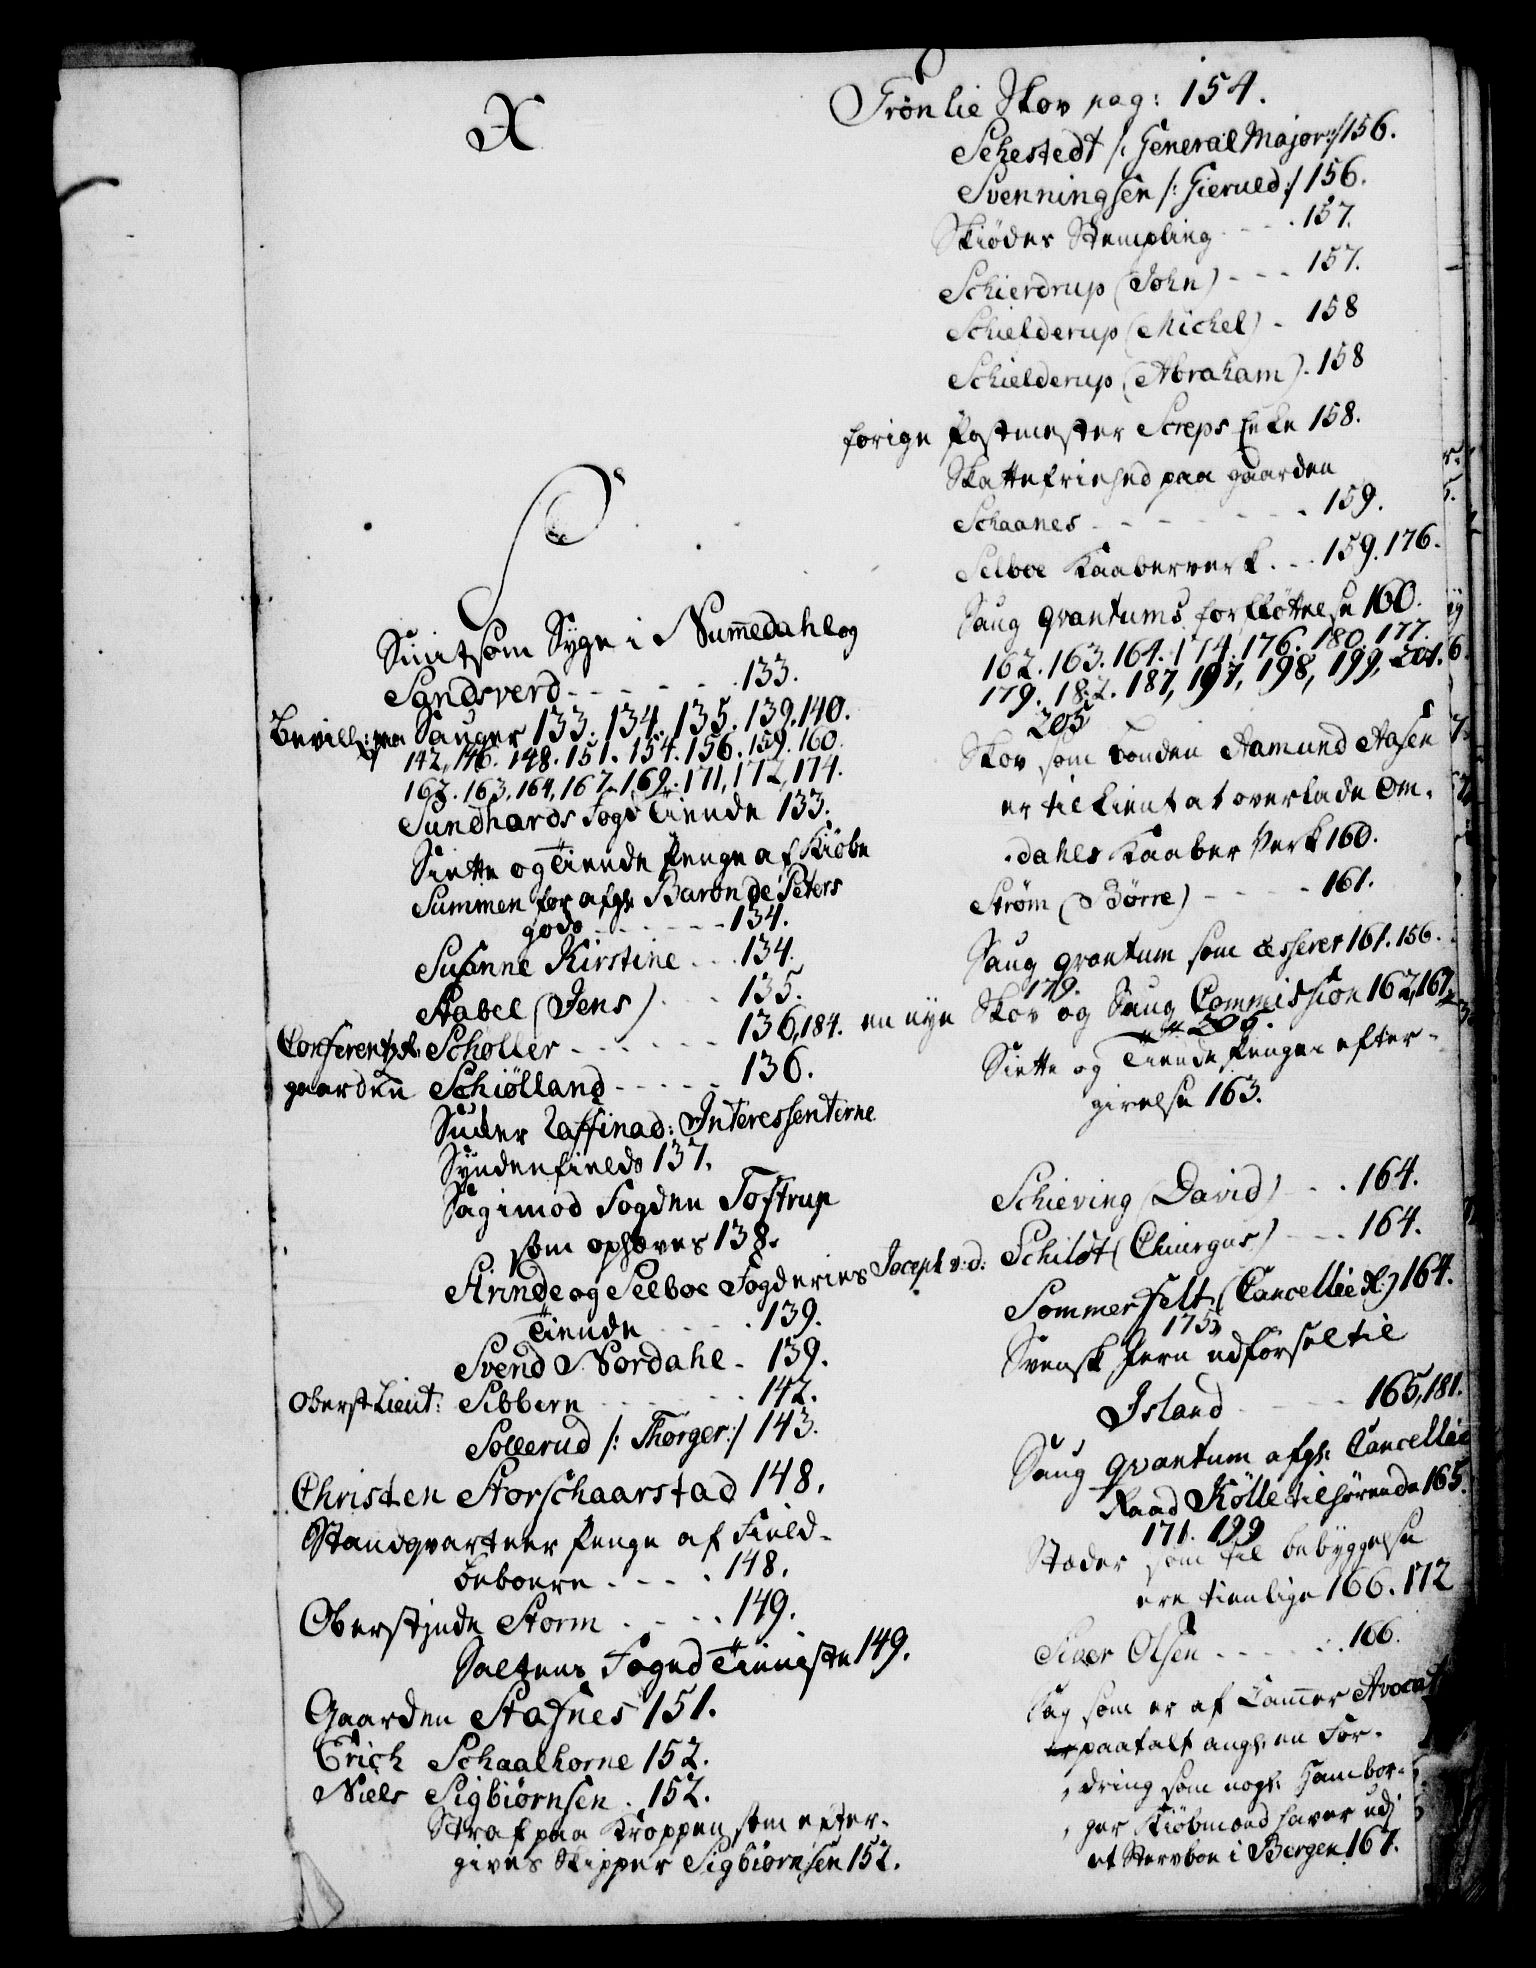 X
S
Smitsom Syge i Nummedahl og
Sandsverd - - - - - 133.
Bevill: paa Sauger 133. 134. 135. 139. 140.
142, 146. 148. 151. 154. 156. 159. 160.
162. 163. 164, 167. 169. 171, 172, 174.
Sundhards Fogd Tiende 133.
Siette og Tiende Penge af Kiøbe
Summen for afgs. Baron de Peters
gods - - - - - 134.
Susanne Kirstine - - 134.
Stabel (Jens) - - 135.
Conferentzr. Schøller - - - - - 136, 184.
gaarden Schiølland - - - - - 136.
Sucker Raffinad: Interessenterne
Syndenfields 137.
Sag imod Fogden Toftrup
som ophæves 138.
Strinde og Selboe Fogderies
Tiende - - - - 139.
Svend Nordahl - 139.
Oberst Lieut: Sibbern - - - - 142.
Sollerud /: Thorger :/ 143.
Christen Storschaarstad 148.
Standqvarteer Penge af Field-
beboere - - - - 148.
Oberstinde Storm - - - - 149.
Saltens Foged Tieniste 149.
Gaarden Stafnes 151.
Erich Schaalhorne 152.
Niels Sigbiørnsen . 152.
Straf paa Kroppen som efter-
gives Skipper Sigbiørnsen 152.
Trønlie Skov pag: 154.
Sehestedt /: General Major :/ 156.
Svenningsen /: Gierued :/ 156.
Skiøders Stempling - - - - 157.
Schierdrup (John) - - - 157.
Schielderup (Michel) - 158
Schielderup (Abraham) - 158
forige Postmester Screps Enke 158.
Skattefriehed paa gaarden
Schaanes - - - - - - - 159.
Selboe Kaaberverk - - - 159. 176.
Saug qvantums forfløttelse 160.
162. 163. 164. 174. 176. 180. 177.
179. 182. 187, 197, 198, 199, 201.
205
Skov som bonden Aamund Aasen
er tilkient at overlade Om-
dahls Kaaber Verk 160.
Strøm (Børre) - - - - 161.
Saug qvantum som 161. 156.
179.
en nye Skov og Saug Commission 162, 167.
205.
Siette og Tiende Penges efter-
givelse 163.
Schieving (David) - - - 164.
Joseph v: d: Schildt (Chirurgus) - - - 164.
Sommerfelt (Cancellie R:) 164.
175.
Svensk Jern udførsel til
Island - - - - - 165, 181.
Saug qvantum afgs. Cancellie
Raad Kølle tilhørende 165.
171. 199
Stæder som til bebyggelse
ere tienlige 166. 172
Siver Olsen - - - - - - 166.
Sag som er af Cammer Avocat
paatalt angs. en For-
dring som nogs. Hambor-
ger Kiøbmænd haver udj
et Stervboe i Bergen 167.